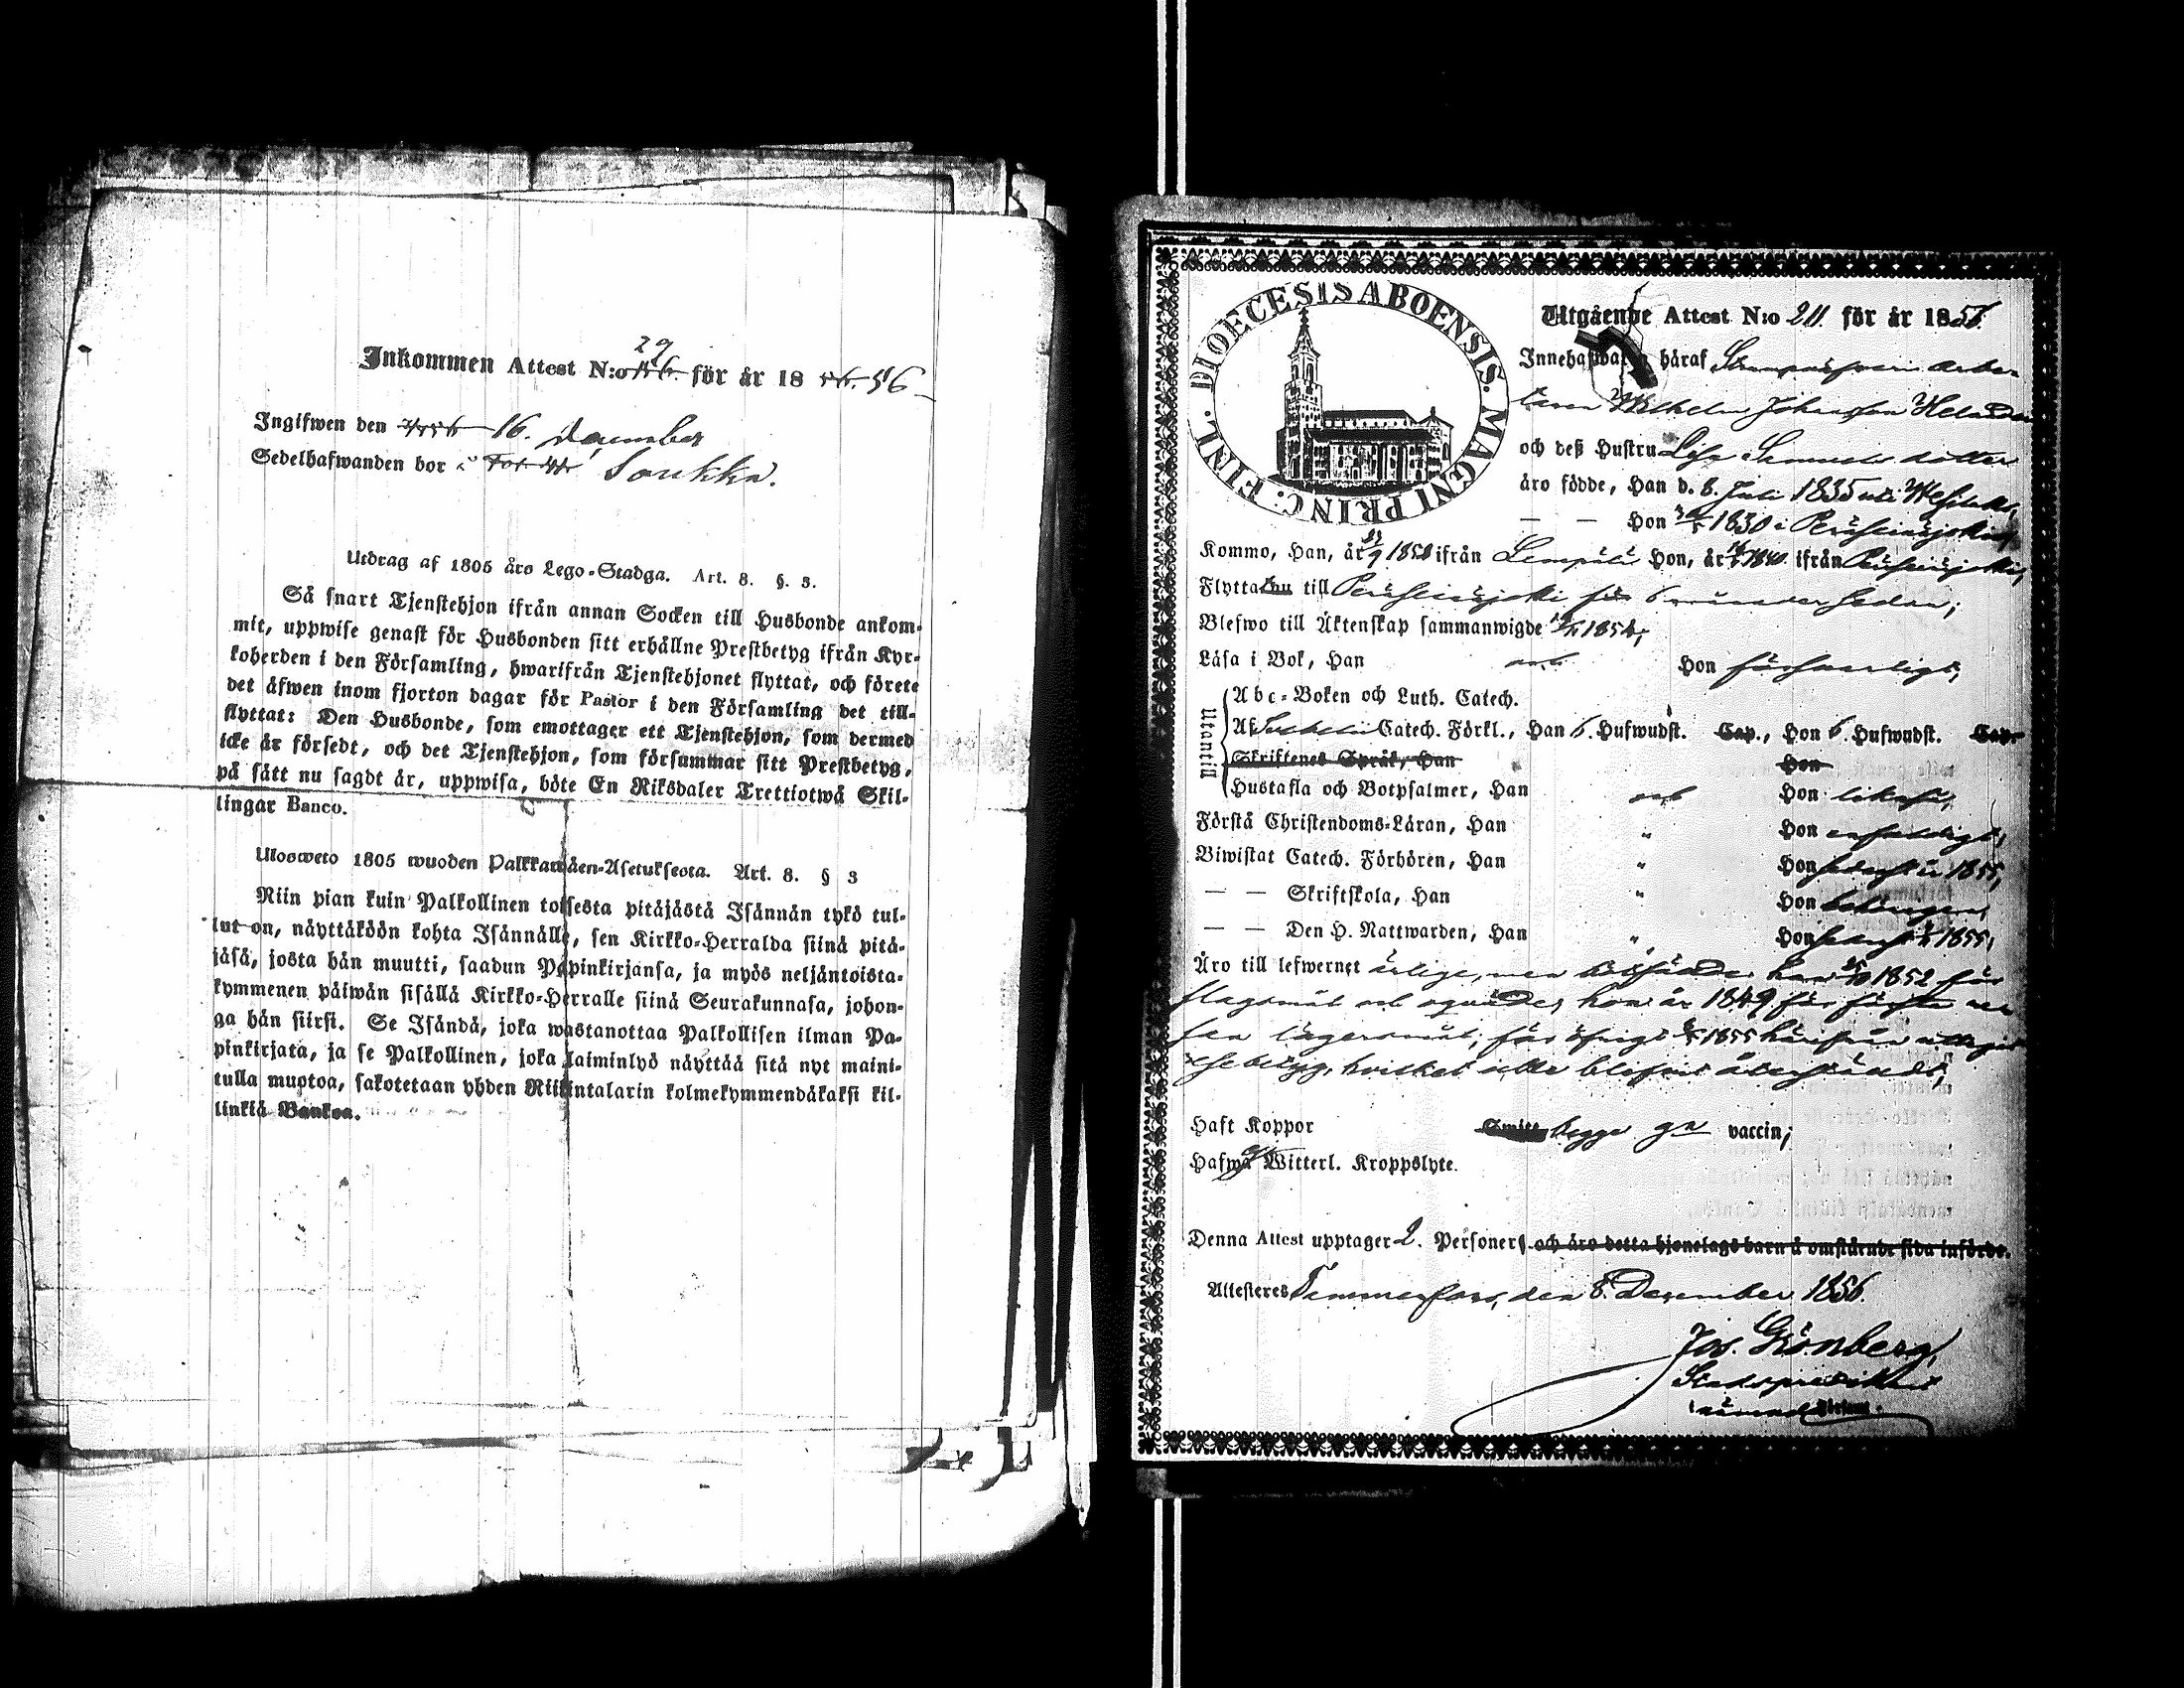 Inkommen Attest N:o 29 för år 18 56
Ingifwen den 16. December
Sedelhafwanden bor i Soukka.
Utdrag af 1805 års Lego-Stadga. Art. 8. §. 3.
Så snart Tjenstehjon ifrån annan Socken till Husbonde ankom-
mit, uppwise genast för Husbonden sitt erhållne Prestbetyg ifrån Kyr-
koherden i den Församling, hwarifrån Tjenstehjonet flyttat, och förete
det äfwen inom fjorton dagar för Pastor i den Församling det till-
flyttat: Den Husbonde, som emottager ett Tjenstehjon, som dermed
icke är försedt, och det Tjenstehjon, som försummar sitt Prestbetyg,
på sätt nu sagdt är, uppwisa, böte En Riksdaler Trettiotwå Skil-
lingar Banco.
Ulosweto 1805 wuoden Palkkawäen-Asetuksesta. Art. 8. § 3
Niin pian kuin Palkollinen toisesta pitäjästä Isännän tykö tul-
lut on, näyttäköön kohta Isännälle, sen Kirkko-Herralda siinä pitä-
jäsä, josta hän muutti, saadun Papinkirjansa, ja myös neljäntoista-
kymmenen päiwän sisällä Kirkko-Herralle siinä Seurakunnasa, johon-
ga hän siirsi. Se Isändä, joka wastanottaa Palkollisen ilman Pa-
pinkirjata, ja se Palkollinen, joka laiminlyö näyttää sitä nyt maini-
tulla muotoa, sakotetaan yhden Riikintalarin kolmekymmendäkaksi kil-
linkiä Bankoa.
DIOECESIS ABOENSIS. MAGNI PRINC: FINL.
Utgående Attest N:o 211. för år 1856.
Innehafwaren häraf Arbe
taren Wilhelm Johansson Helander
och deß Hustru Lisa Samuels dotter
äro födde, Han d. 8. Juli 1835 uti Wesilaks,
— — Hon 1830 i Peräseinäjoki,
Kommo, Han, år 1850 ifrån Lempälä Hon, år ifrån Peräseinäjoki,
Flytta till Peräseinäjoki för 6 månader sedan;
Blefwo till Äktenskap sammanwigde
Läsa i Bok, Han Hon försvarligt,
Utantill
Abc-Boken och Luth. Catech.
Af Catech. Förkl., Han 6. Hufwudst. Cap., Hon 6. Hufwudst. Cap.
Skriftenes Språk, Han Hon
Hustafla och Botpsalmer, Han och Hon likaså,
Förstå Christendoms-Läran, Han " Hon enfaldigt,
Biwistat Catech. Förhören, Han " Hon senast år 1855,
— — Skriftskola, Han " Hon behörigen,
— — Den H. Nattwarden, Han " Hon senast 1855,
Äro till lefwernet ärlige, men han 1852 för
slagsmål och hon år 1849 för första
lägersmål; för öfrigt 1855 härifrån
betyg, hvilket icke blifvit
Haft Koppor begge vaccin;
Hafwa Witterl. Kroppslyte.
Denna Attest upptager 2. Personer, och äro detta hjonelags barn å omstående sida införde.
Attesteres Tammerfors, den 8. December 1856.
Jos. Grönberg,
Stadspredikant